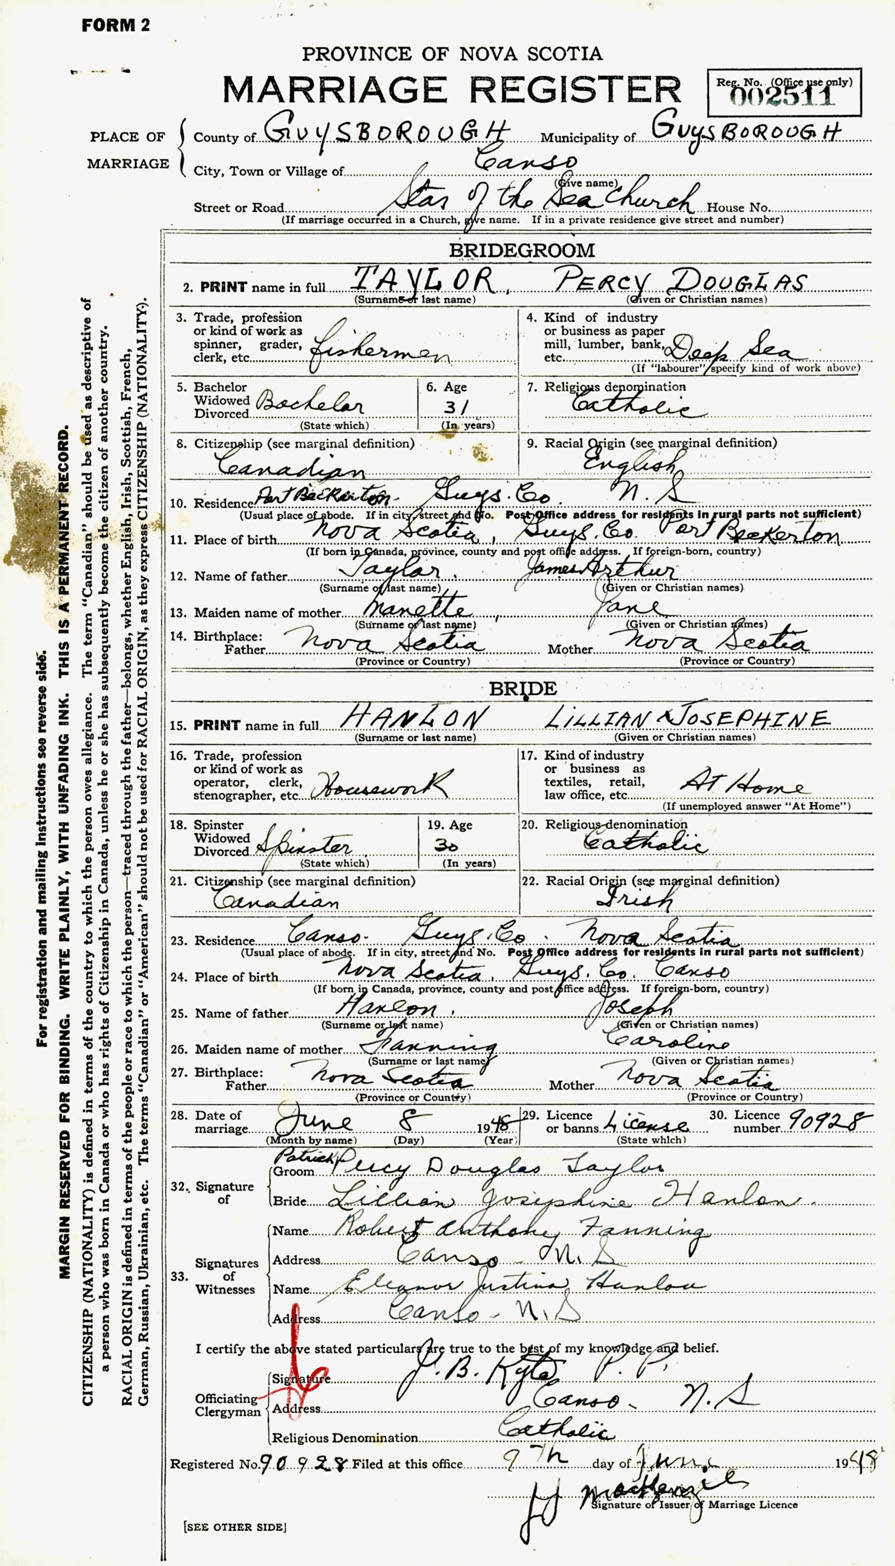 FORM 2
PROVINCE OF NOVA SCOTIA
MARRIAGE REGISTER
Reg. No. (Office use only)
002511
PLACE OF MARRIAGE
County of GUYSBOROUGH Municipality of GUYSBOROUGH
City, Town or Village of Canso
(Give name)
Street or Road Star of the Sea Church House No.
(If marriage occurred in a Church, give name. If in a private residence give street and number)
BRIDEGROOM
2. PRINT name in full TAYLOR, PERCY DOUGLAS
(Surname or last name) (Given or Christian names)
3. Trade, profession or kind of work as spinner, grader, clerk, etc. fishermen
4. Kind of industry or business as paper mill, lumber, bank, etc. Deep Sea
(If "labourer" specify kind of work above)
5. Bachelor Widowed Divorced Bachelor
(State which)
6. Age 31
(In years)
7. Religious denomination Catholic
8. Citizenship (see marginal definition) Canadian
9. Racial Origin (see marginal definition) English
10. Residence Port Beckerton- Guys. Co. N. S
(Usual place of abode. If in city, street and No. Post Office address for residents in rural parts not sufficient)
11. Place of birth Nova Scotia, Guys. Co Port Beckerton
(If born in Canada, province, county and post office address. If foreign-born, country)
12. Name of father Taylor, James Arthur
(Surname of last name) (Given or Christian names)
13. Maiden name of mother Manette, Jane
(Surname of last name) (Given or Christian names)
14. Birthplace:
Father Nova Scotia Mother Nova Scotia
(Province or Country) (Province or Country)
BRIDE
15. PRINT name in full HANLON LILLIAN JOSEPHINE
(Surname or last name) (Given or Christian names)
16. Trade, profession or kind of work as operator, clerk, stenographer, etc. Housework
17. Kind of industry or business as textiles, retail, law office, etc. At Home
(If unemployed answer "At Home")
18. Spinster Widowed Divorced Spinster
(State which)
19. Age 30
(In years)
20. Religious denomination Catholic
21. Citizenship (see marginal definition) Canadian
22. Racial Origin (see marginal definition) Irish
23. Residence Canso- Guys. Co. Nova Scotia
(Usual place of abode. If in city, street and No. Post Office address for residents in rural parts not sufficient)
24. Place of birth Nova Scotia, Guys. Co. Canso
(If born in Canada, province, county and post office address. If foreign-born, country)
25. Name of father Hanlon, Joseph
(Surname or last name) (Given or Christian names)
26. Maiden name of mother Fanning Caroline
(Surname or last name) (Given or Christian names)
27. Birthplace:
Father Nova Scotia Mother Nova Scotia
(Province or Country) (Province or Country)
28. Date of marriage June 8 1948
(Month by name) (Day) (Year)
29. Licence or banns License
(State which)
30. Licence number 90928
32. Signature of
Groom Patrick Percy Douglas Taylor
Bride Lillian Josephine Hanlon
33. Signatures of Witnesses
Name Robert Anthony Fanning
Address Canso - N. S
Name Eleanor Justina Hanlon
Address Canso - N. S
I certify the above stated particulars are true to the best of my knowledge and belief.
Officiating Clergyman
Signature J. B. Kyte P. P.
Address Canso- N. S
Religious Denomination Catholic
Registered No. 90928 Filed at this office 9th day of June 1948
MacKenzie
Signature of Issuer of Marriage Licence
[SEE OTHER SIDE]
For registration and mailing instructions see reverse side.
MARGIN RESERVED FOR BINDING. WRITE PLAINLY, WITH UNFADING INK. THIS IS A PERMANENT RECORD.
CITIZENSHIP (NATIONALITY) is defined in terms of the country to which the person owes allegiance. The term "Canadian" should be used as descriptive of
a person who was born in Canada or who has rights of Citizenship in Canada, unless he or she has subsequently become the citizen of another country.
RACIAL ORIGIN is defined in terms of the people or race to which the person—traced through the father—belongs, whether English, Irish, Scottish, French,
German, Russian, Ukrainian, etc. The terms "Canadian" or "American" should not be used for RACIAL ORIGIN, as they express CITIZENSHIP (NATIONALITY).